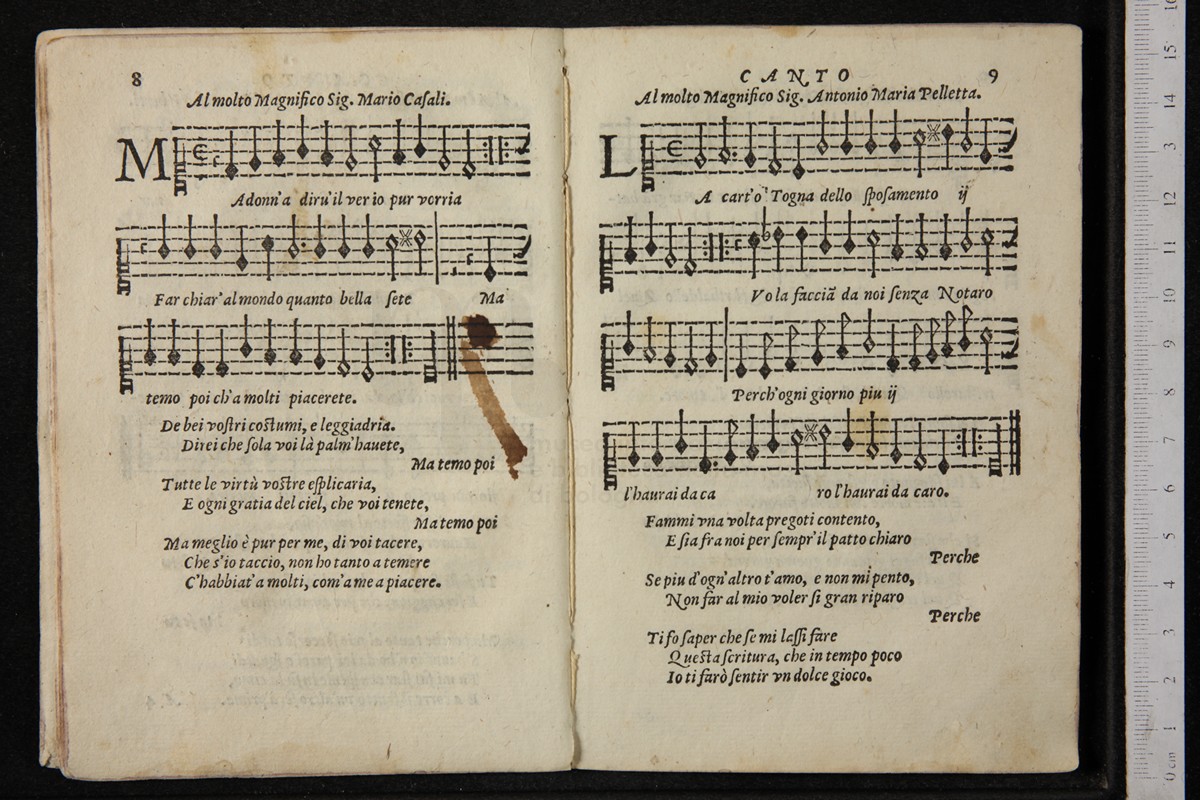 8
Al molto Magnifico Sig. Mario Caſali.
M
Adonn'a diru'il ver io pur vorria
Far chiar'al mondo quanto bella ſete Ma
temo poi ch'a molti piacerete.
De bei voſtri coſtumi, e leggiadria.
Direi che ſola voi là palm'hauete,
Ma temo poi
Tutte le virtù voſtre eſplicaria,
E ogni gratia del ciel, che voi tenete,
Ma temo poi
Ma meglio è pur per me, di voi tacere,
Che s'io taccio, non ho tanto a temere
C'habbiat'a molti, com'a me a piacere.
CANTO
9
Al molto Magnifico Sig. Antonio Maria Pelletta.
L
A cart'o' Togna dello ſpoſamento ij
Vo la facciā da noi ſenza Notaro
Perch'ogni giorno piu ij
l'haurai da ca ro l'haurai da caro.
Fammi vna volta pregoti contento,
E ſia fra noi per ſempr'il patto chiaro
Perche
Se piu d'ogn'altro t'amo, e non mi pento,
Non far al mio voler ſi gran riparo
Perche
Ti fo ſaper che ſe mi laſſi fare
Queſta ſcritura, che in tempo poco
Io ti farò ſentir vn dolce gioco.
0 cm
1
2
3
4
5
6
7
8
9
10
11
12
13
14
15
16